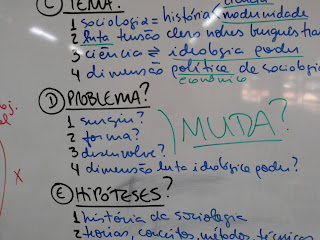 C TEMA:
1 sociologia = história modernidade
2 luta tensão clero nobres burgues trab
3 ciência ⇌ ideologia poder
4 dimensão política da sociologia
econômico
D PROBLEMA?
1 surgir?
2 forma?
3 desenvolve?
4 dimensão luta ideológico poder?
MUDA?
E HIPÓTESES?
1 história da sociologia
2 teorias, conceitos, métodos, técnicas
X